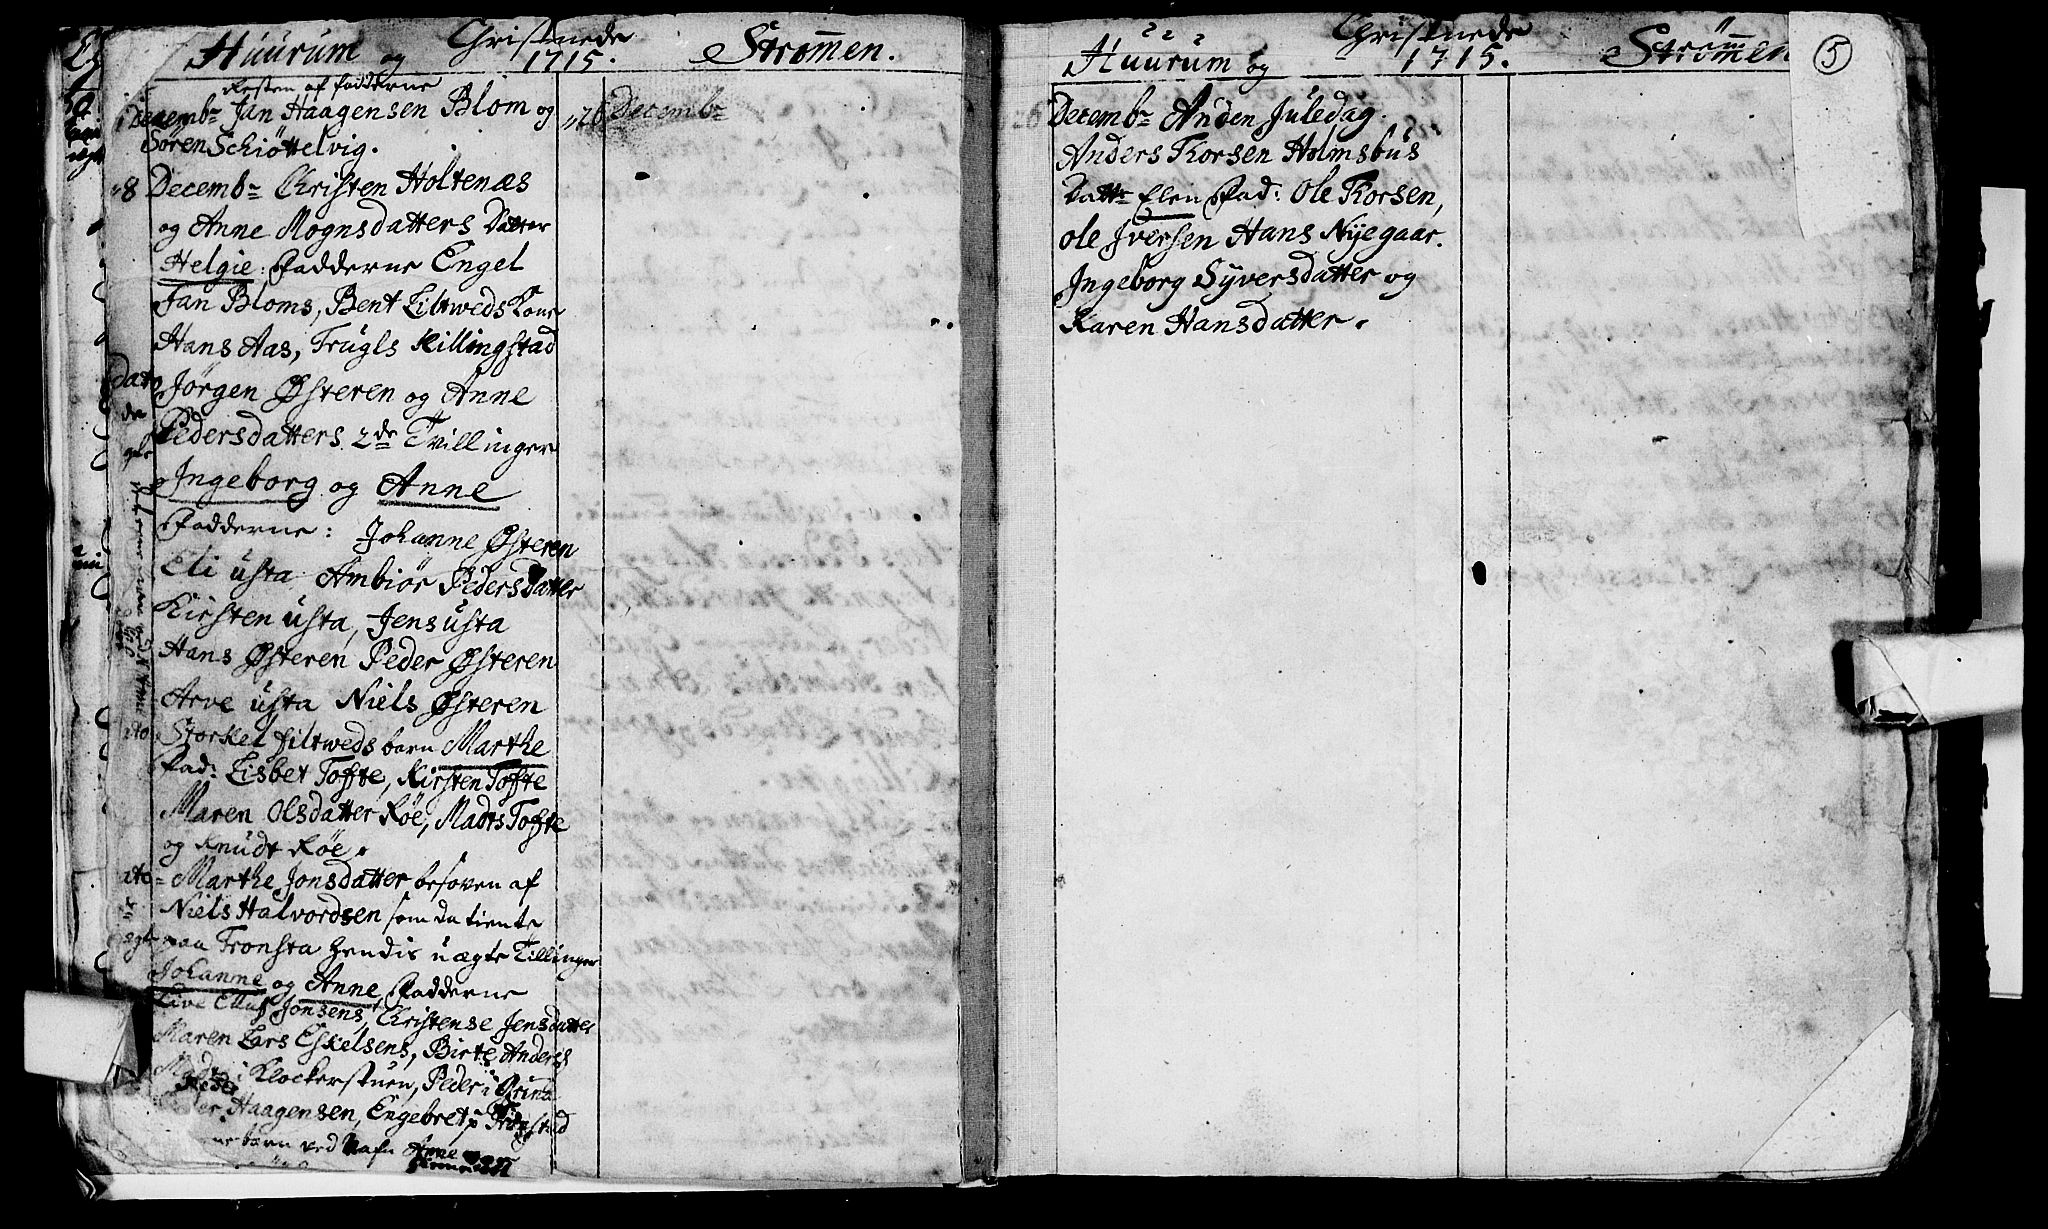 Huurum og Christnede 1715. Strømmen.
Resten af fadderne
1 Decembr Jan Haagensen Blom og
Sören Schiöttelvig.
8 Decembr Christen Holtenæs
og Anne Mognsdatters Datter
Helgie: Fadderne Engel
Jan Bloms, Bent Liltweds Kone
Hans Aas, Trugls Killingstad
Dato Jörgen Østeren og Anne
Pedersdatters 2de Tvillinger
Ingeborg og Anne
Fadderne: Johanne Østeren
Eli usta Ambiör Pedersdatter
Kirsten usta, Jens usta
Hans Østeren Peder Østeren
Arve usta Niels Østeren
ito Storkel filtweds barn Marthe
Fad: Lisbet Tofte, Kirsten Tofte
Maren Olsdatter Röe, Madts Tofte
og Knudt Röe.
ito Marthe Jonsdatter besoven af
Niels Halvordsen som da tiente
paa Tronsta hendis uægte Tillinger
Johanne og Anne Fadderne
Live Ellufs Jonsens, Christense Jensdatter
Maren Lars Eskelsens, Birte Anders
i Klockerstuen, Peder i
Haagensen, Engebret
barn ved Nafn Anne
26 Decembr
Huurum og Christnede 1715. Strömmen
5
26 Decembr Anden Juledag.
Anders Korsen Holmsbus
Dattr Elen Fad: Ole Korsen,
Ole Iversen Hans Nyegaar.
Ingeborg Syversdatter og
Karen Hansdatter.